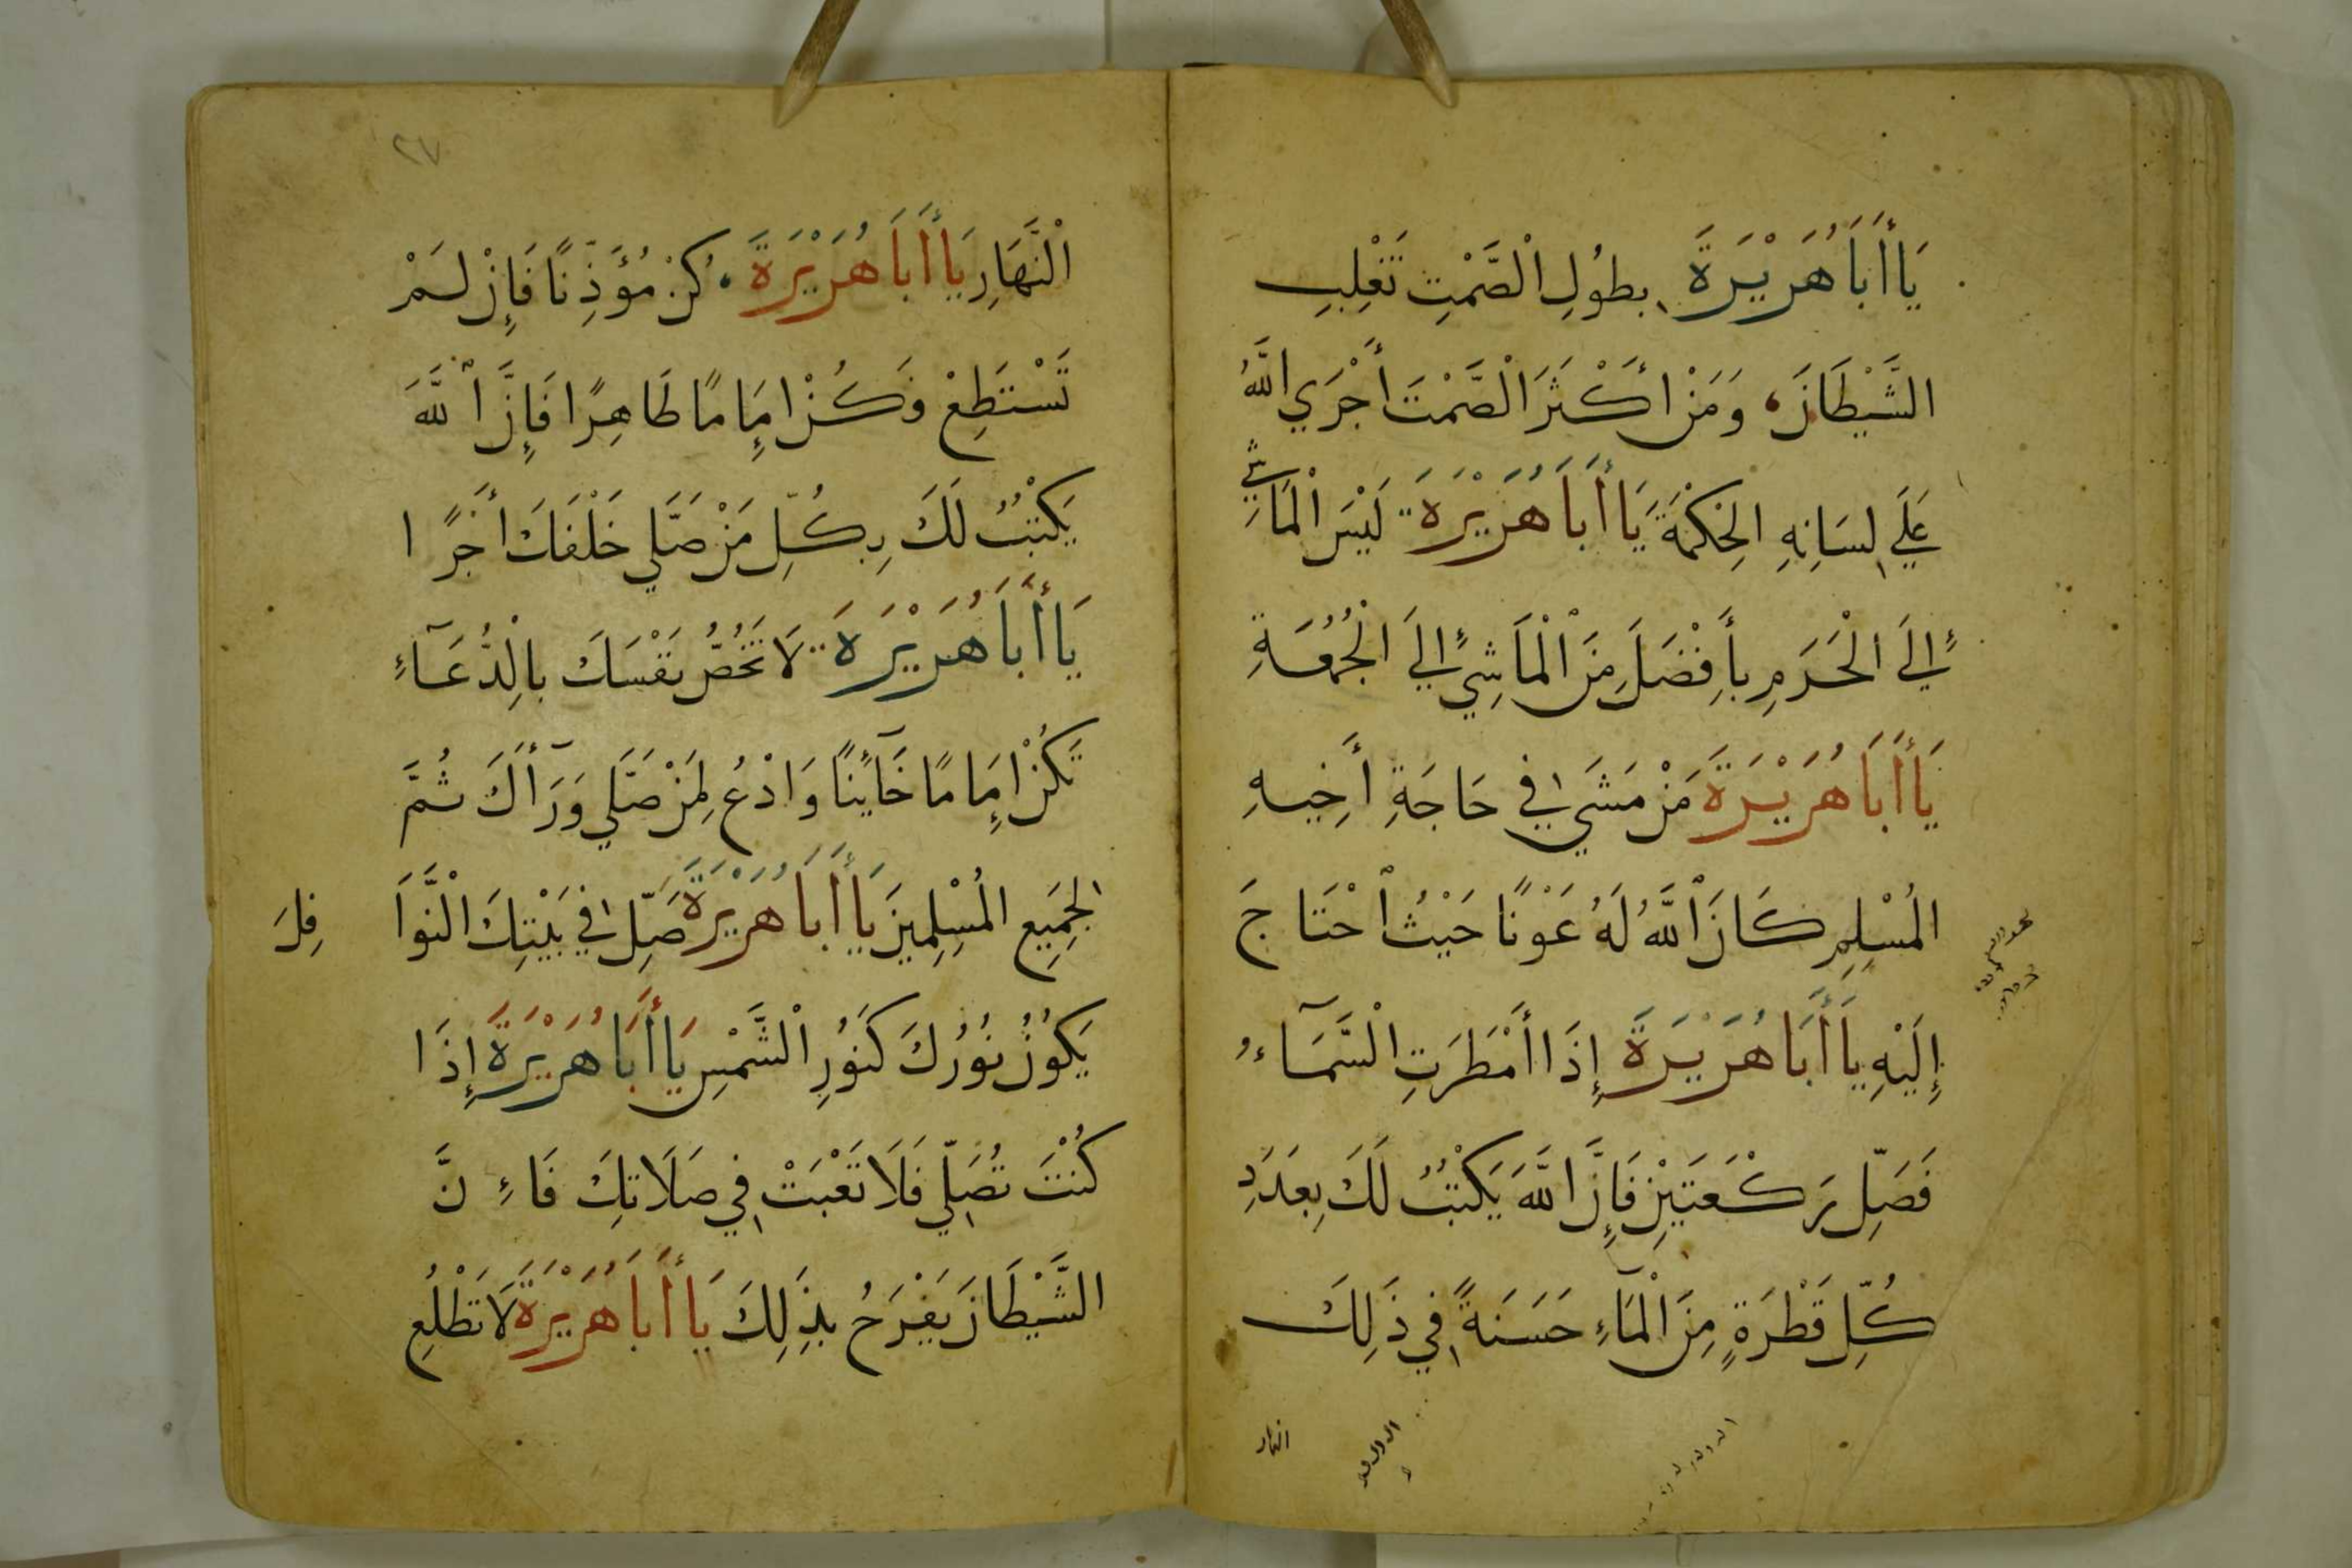 يَا أَبَا هُرَيْرَةَ بِطُولِ الْصَّمْتِ تَغْلِبِ
الشَّيْطَانَ، وَمَنْ أَكْثَرَ الْصَّمْتَ أَجْرَي اللَّهُ
عَلَي لِسَانِهِ الْحِكْمَةَ يَا أَبَا هُرَيْرَةَ لَيْسَ الْمَاشِي
إِلَيَ الْحَرَمِ بِأَفْضَلَ مِنَ الْمَاشِي إِلَيَ الْجُمُعَةِ
يَا أَبَا هُرَيْرَةَ مَنْ مَشَي فِي حَاجَةِ أَخِيهِ
الْمُسْلِمِ كَانَ اللَّهُ لَهُ عَوْنًا حَيْثُ احْتَاجَ
إِلَيْهِ يَا أَبَا هُرَيْرَةَ إِذَا أَمْطَرَتِ الْسَّمَآءُ
فَصَلِّ رَكْعَتَيْنِ فَإِنَّ اللَّهَ يَكْتُبُ لَكَ بِعَدَدِ
كُلِّ قَطْرَةٍ مِنَ الْمَآءِ حَسَنَةً فِي ذَلِكَ
النهار
٢٧
الْنَّهَارِ يَا أَبَا هُرَيْرَةَ كُنْ مُؤَذِّنًا فَإِنْ لَمْ
تَسْتَطِعْ فَكُنْ إِمَامًا طَاهِرًا فَإِنَّ اللَّهَ
يَكْتُبُ لَكَ بِكُلِّ مَنْ صَلَّي خَلْفَكَ أَجْرًا
يَا أَبَا هُرَيْرَةَ لَا تَخُصُّ نَفْسَكَ بِالْدُّعَآءِ
تَكُنْ إِمَامًا خَآئِنًا وَادْعُ لِمَنْ صَلَّي وَرَآأَكَ ثُمَّ
الجَمِيعِ الْمُسْلِمِينَ يَا أَبَا هُرَيْرَةَ صَلِّ فِي بَيْتِكَ الْنَّوَا
فِلَ
يَكُونُ نُورُكَ كَنُورِ الْشَّمْسِ يَا أَبَا هُرَيْرَةَ إِذَا
كُنْتَ تُصَلِّي فَلَا تَعْبَثْ فِي صَلَاتِكَ فَإِنَّ
الشَّيْطَانَ يَفْرَحُ بِذَلِكَ يَا أَبَا هُرَيْرَةَ لَا تَطْلُعِ